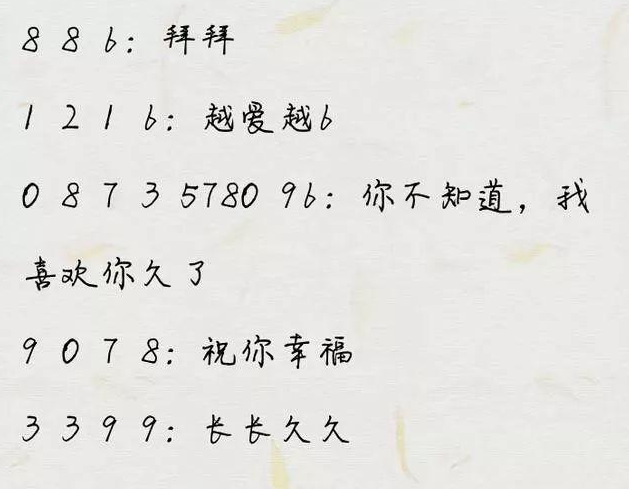 8 8 6：拜拜
1 2 1 6：越爱越6
0 8 7 3 5780 96：你不知道，我
喜欢你久了
9 0 7 8：祝你幸福
3 3 9 9：长长久久